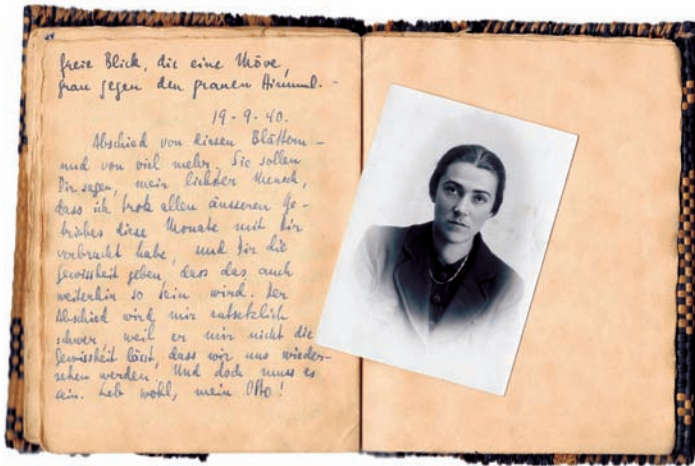 freie Blick, die eine Möve,
grau gegen den grauen Himmel. -
19-9-40.
Abschied von diesen Blättern -
und von viel mehr. Sie sollen
Dir sagen, mein liebster Mensch,
dass ich trotz allen äusseren Ge-
triebes diese Monate mit Dir
verbracht habe, und Dir die
Gewissheit geben, dass das auch
weiterhin so sein wird. Der
Abschied wird mir entsetzlich
schwer, weil er mir nicht die
Gewissheit lässt, dass wir uns wieder-
sehen werden. Und doch muss es
sein. Leb wohl, mein Otto!